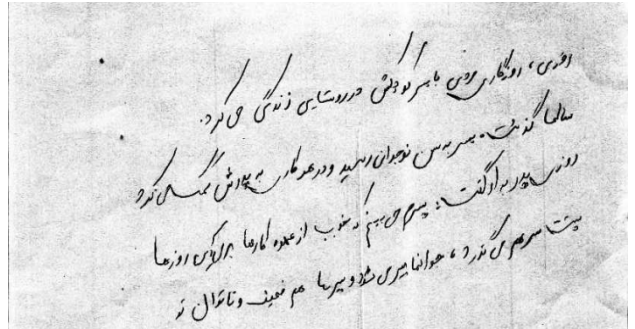 روزی، روزگاری مردی با پسر کوچکش در روستایی زندگی می کرد.
سالها گذشت. پسر به سن نوجوانی رسید و در هر کاری به پدرش کمک می کرد
روزی پدر به او گفت: پسرم می بینم که خوب از عهده کارها برمی آیی روزها
پشت سر هم می گذرد، جوانها پیر می شوند و پیرها هم ضعیف و ناتوان تو